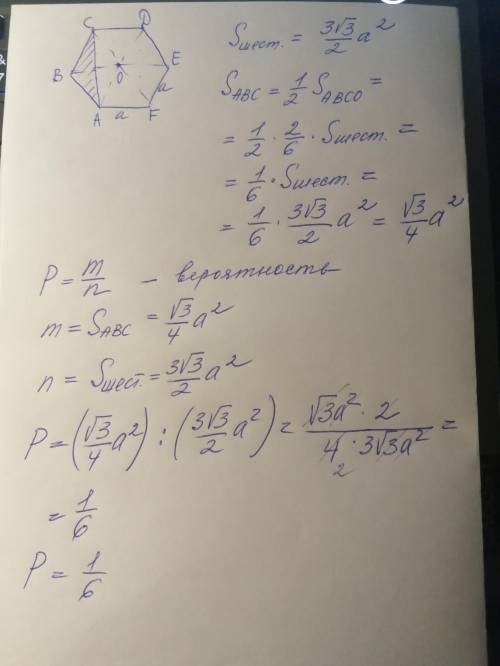 C D
B O E
A a F a
Sшест. = 3√3/2 a²
S_ABC = 1/2 S_ABCO =
= 1/2 · 2/6 · Sшест. =
= 1/6 · Sшест. =
= 1/6 · 3√3/2 a² = √3/4 a²
P = m/n – вероятность
m = S_ABC = √3/4 a²
n = Sшест. = 3√3/2 a²
P = (√3/4 a²) : (3√3/2 a²) = √3a² · 2 / 4 · 3√3a² =
2
= 1/6
P = 1/6